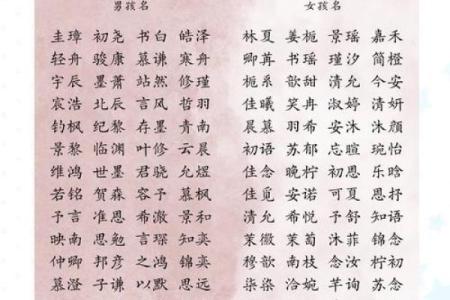 男孩名 女孩名
圭璋 初尧 书白 皓泽 林夏 姜栀 景瑶 嘉禾
轻舟 骏康 慕谦 寒舟 卿苒 书瑶 瑾汐 简橙
宇辰 墨萧 站然 修瑾 栀系 歆甜 清允 今安
宸浩 北辰 言风 哲羽 佳曦 笑冉 淑婷 清妍
钓枫 纪黎 存墨 青南 晨慕 羽希 安沐 沐颜
景黎 临渊 叶修 云晨 初语 苏郁 忘暄 琬怡
维鸿 世墨 君骁 允煜 佳念 晚柠 初思 乐晗
若铭 贺森 容予 慕枫 佳觅 安诺 可夏 恩抒
予言 准恩 希澈 景和 清允 希悦 予舒 知语
映南 思勉 言琛 知奕 茉薇 茉茵 沐菲 锦念
仲卿 邦彦 之鸿 锦奕 穆歆 南枝 念汝 柠初
慕澄 子谦 以默 思远 柒柒 洽婉 芊询 苏念